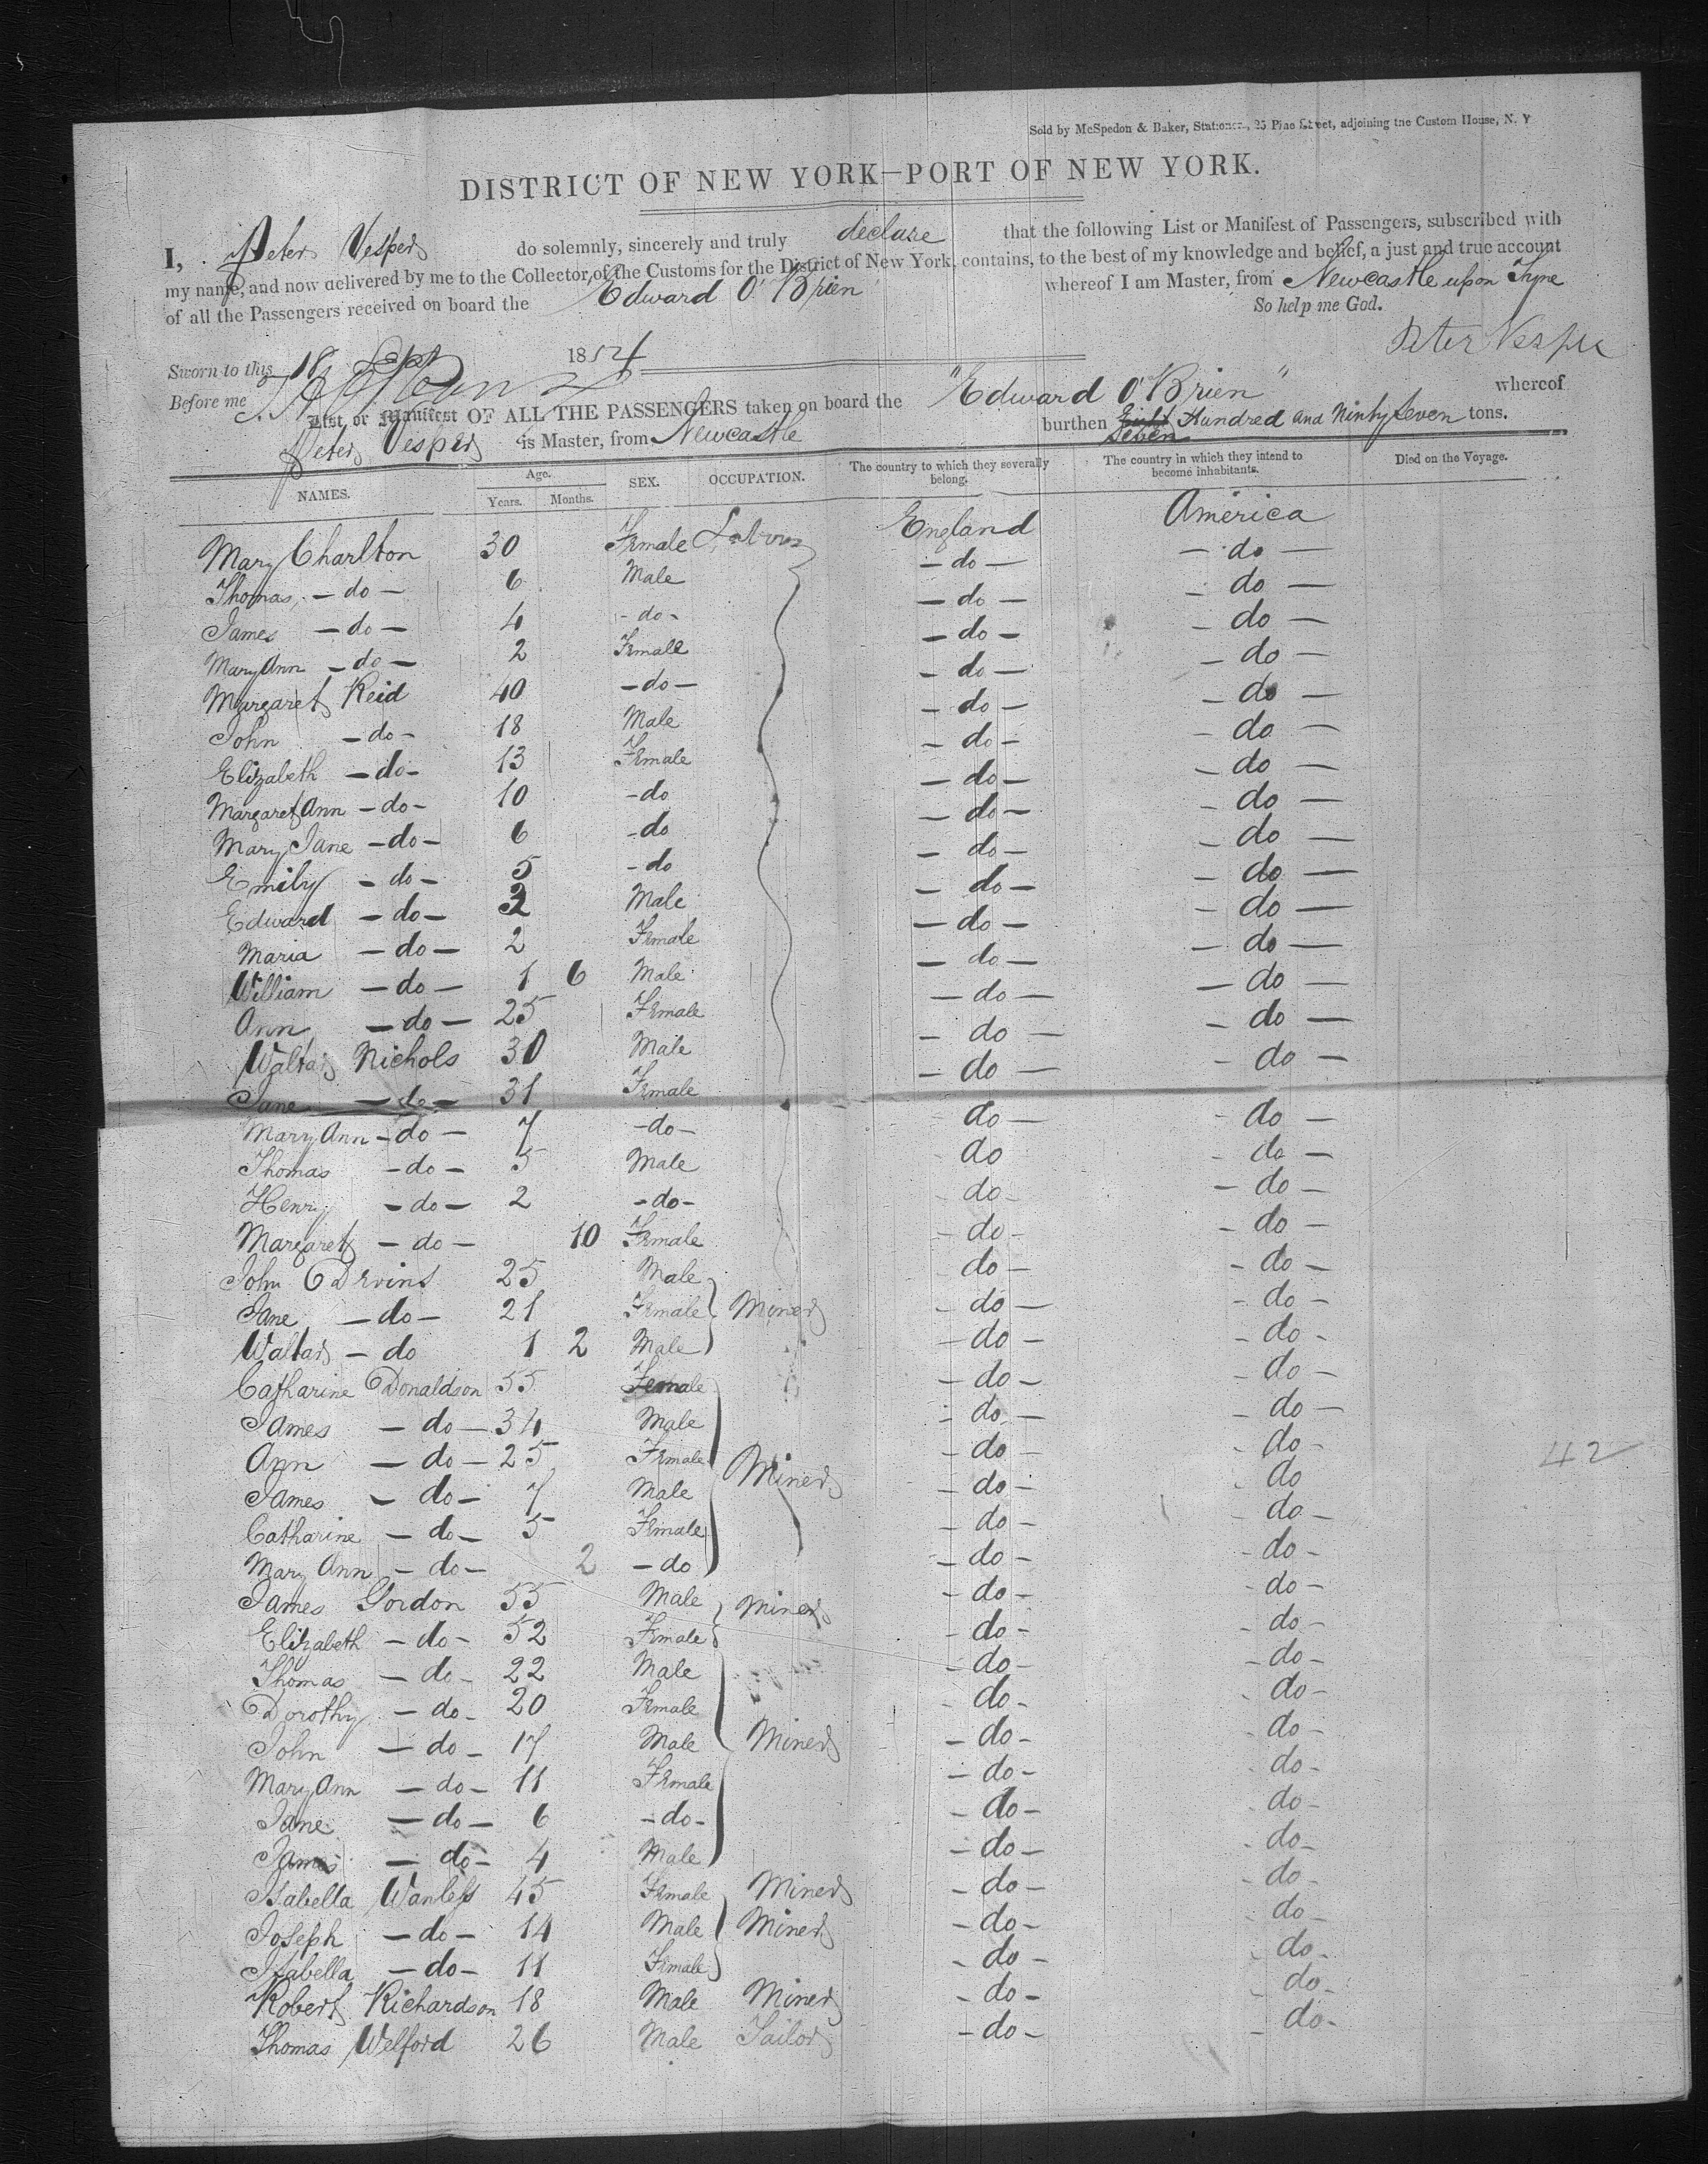 Sold by McSpedon & Baker, Stationers, 25 Pine Street, adjoining the Custom House, N. Y
DISTRICT OF NEW YORK—PORT OF NEW YORK.
I, Peter Vesper do solemnly, sincerely and truly declare that the following List or Manifest of Passengers, subscribed with
my name, and now delivered by me to the Collector of the Customs for the District of New York, contains, to the best of my knowledge and belief, a just and true account
of all the Passengers received on board the Edward O'Brien whereof I am Master, from Newcastle upon Tyne
So help me God.
Sworn to this 18 Sept 1854 Peter Vesper
Before me
List or Manifest OF ALL THE PASSENGERS taken on board the "Edward O'Brien" whereof
Peter Vesper is Master, from Newcastle burthen Eight Seven Hundred and Ninty Seven tons.
NAMES. Age. Years. Months. SEX. OCCUPATION. The country to which they severally belong. The country in which they intend to become inhabitants. Died on the Voyage.
Mary Charlton 30 Female England America
Thomas — do — 6 Male — do — — do —
James — do — 4 - do - — do — — do —
Mary Ann — do — 2 Female — do — — do —
Margaret Reid 40 — do — — do — — do —
John — do - 18 Male — do — — do —
Elizabeth — do - 13 Female — do — — do —
Margaret Ann — do - 10 - do — do — — do —
Mary Jane — do — 6 - do — do — — do —
Emily — do — 5 - do — do — — do —
Edward — do — 2 Male — do — — do —
Maria — do — 2 Female — do — — do —
William — do — 1 6 Male — do — — do —
Ann — do — 25 Female — do — — do —
Walter Nichols 30 Male — do — — do —
Jane — do — 31 Female — do — — do —
Mary Ann — do — 7 — do — do — — do —
Thomas — do — 5 Male do — do —
Henry — do — 2 — do — do — — do —
Margaret — do — 10 Female — do — — do —
John 25 Male do — — do —
Jane — do — 21 Female Miner — do — — do —
Walter — do 1 2 Male — do — — do —
Catharine Donaldson 55 Female — do — — do —
James — do — 34 Male — do — — do —
Ann — do — 25 Female Miner — do — — do —
James — do — 7 Male — do — do
Catharine — do — 5 Female — do — — do —
Mary Ann — do — 2 — do — do — — do —
James Gordon 55 Male Miner — do — — do —
Elizabeth — do — 52 Female — do — — do —
Thomas — do — 22 Male — do — — do —
Dorothy — do — 20 Female — do — — do —
John — do — 17 Male Miner — do — — do —
Mary Ann — do — 11 Female — do — — do —
Jane — do — 6 — do — — do — — do —
James — do — 4 Male — do — — do —
Isabella Wanless 45 Female Miner — do — — do —
Joseph — do — 14 Male Miner — do — — do —
Isabella — do — 11 Female — do — — do —
Robert Richardson 18 Male Miner — do — — do —
Thomas Welford 26 Male Tailor — do — — do —
42